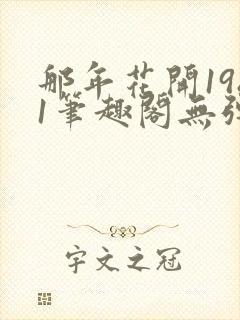 那年花開19
1筆趣閣無
宇文之冠